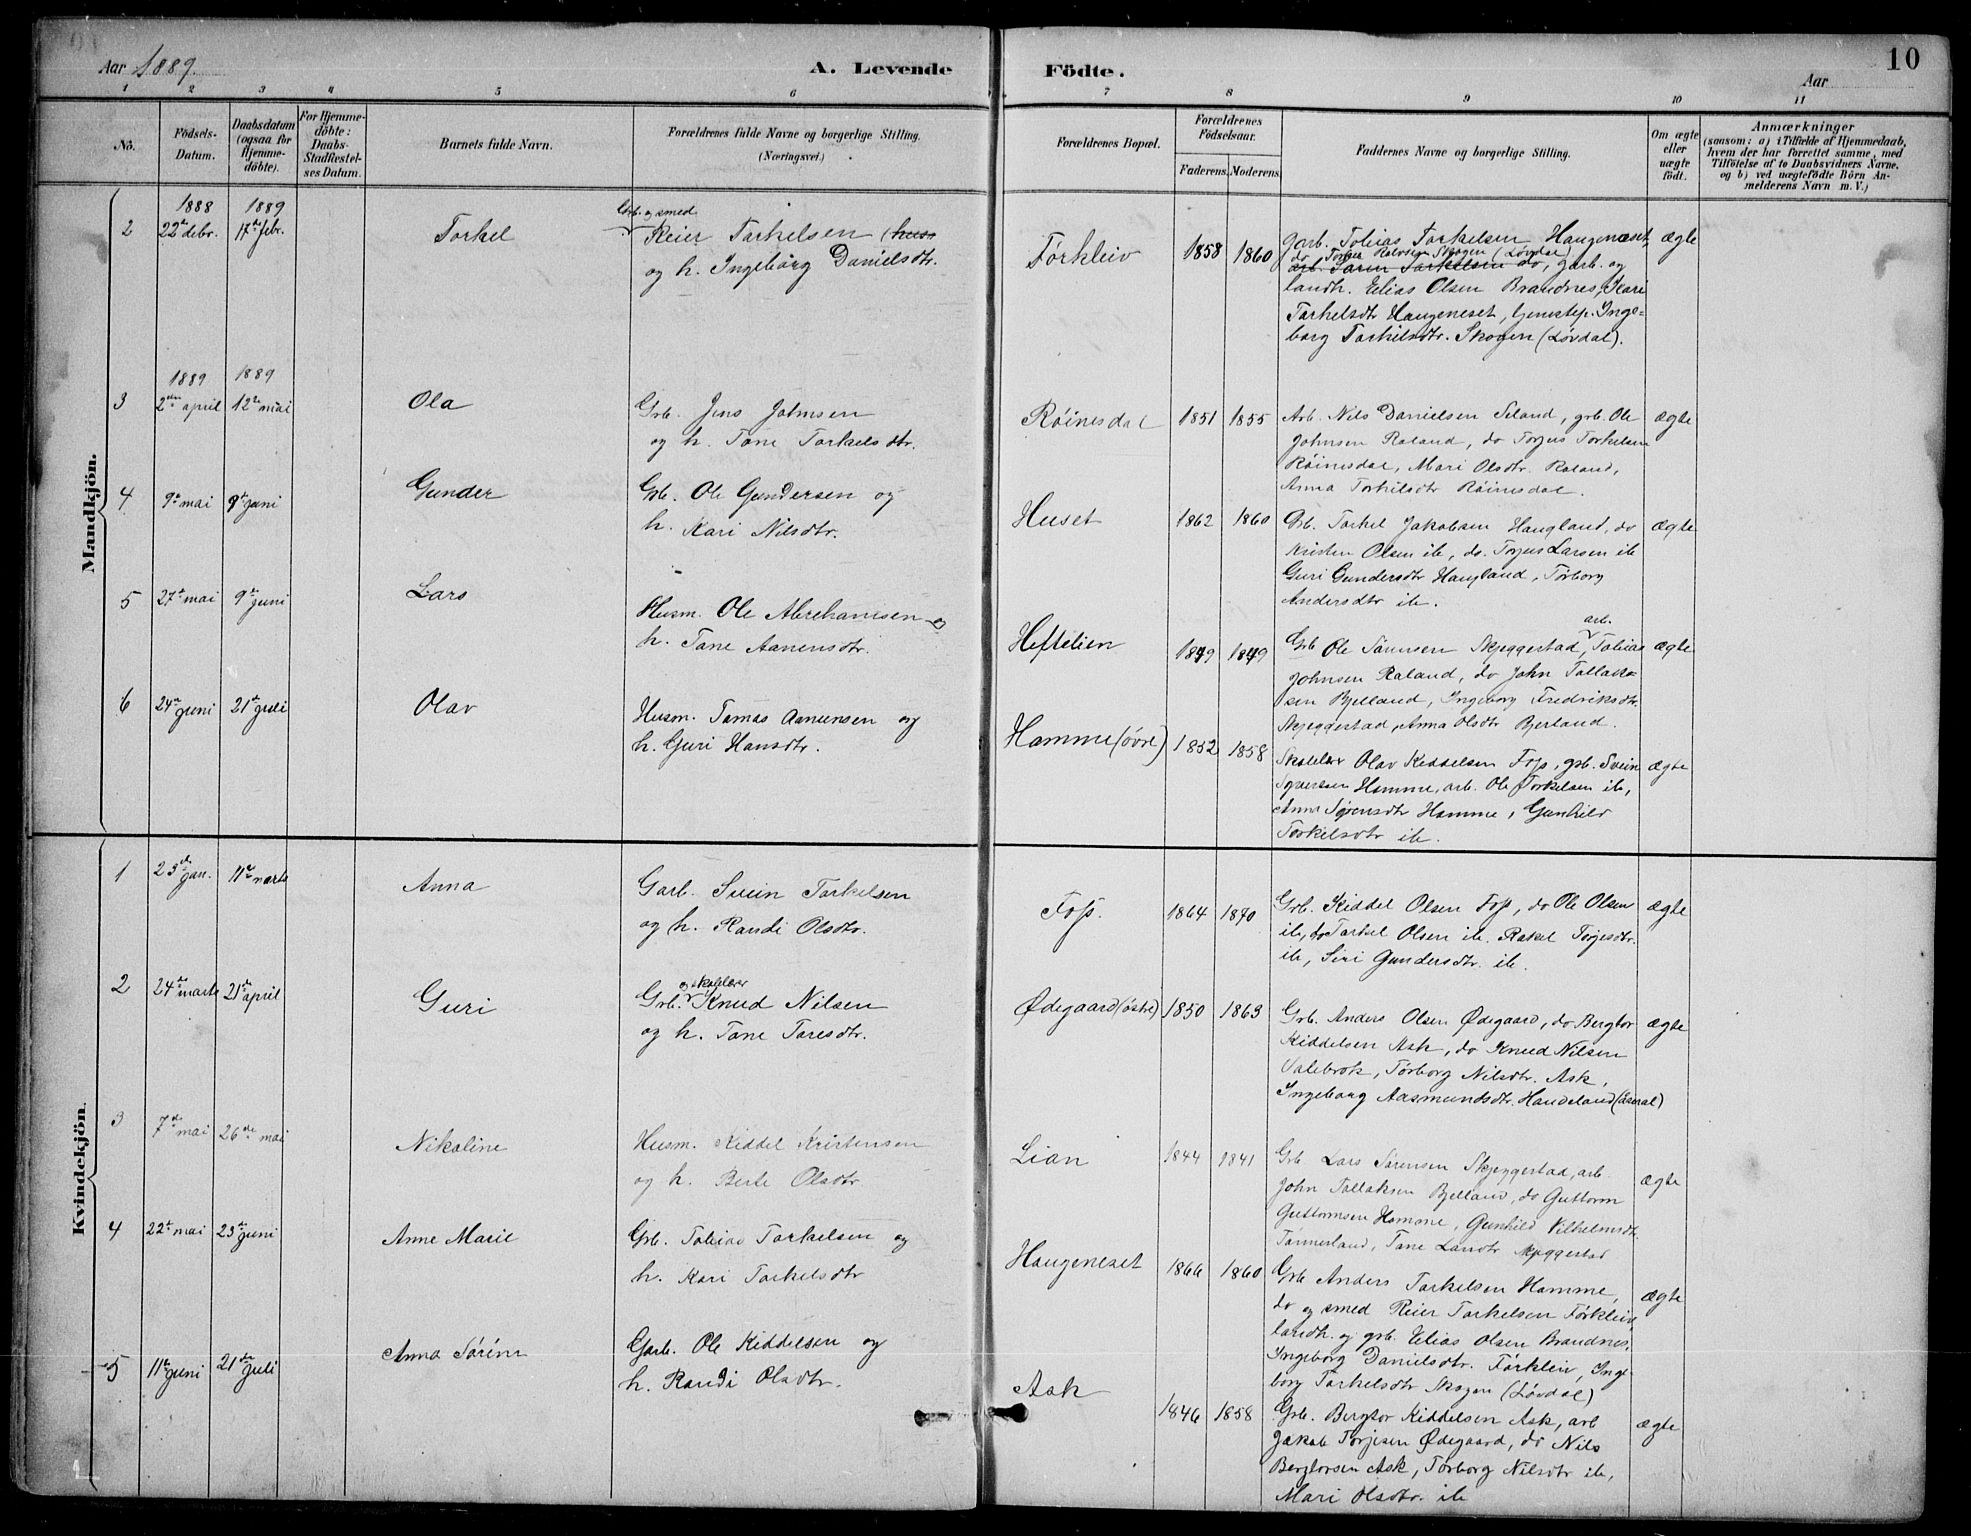 Aar 1889.
A. Levende
Födte.
Aar
10
1 2 3 4 5 6 7 8 9 10 11
No.
Födsels-
Datum.
Daabsdatum
(ogsaa for
Hjemme-
döbte).
For Hjemme-
döbte:
Daabs-
Stadfæstel-
ses Datum.
Barnets fulde Navn.
Forældrenes fulde Navne og borgerlige Stilling.
(Næringsvei.)
Forældrenes Bopæl.
Forældrenes
Födselsaar.
Faderens. Moderens.
Faddernes Navne og borgerlige Stilling.
Om ægte
eller
uægte
födt.
Anmærkninger
(saasom: a) i Tilfælde af Hjemmedaab,
hvem der har forrettet samme, med
Tilföielse af to Daabsvidners Navne.
og b) ved uægtefödte Börn An-
melderens Navn m. V.)
Mandkjön.
1888 1889
2 22de debr. 17de febr. Torkel
Grb. og smed
Reier Tarkelsen (huss
og h. Ingebörg Danielsdtr.
Förkleiv 1858 1860
garb. Tobias Tarkelsen Haugeneset, ægte
do Torber Rolvsen Skogen (Lövdal)
arb. Sören Tarkelsen do, garb. og
landh. Elias Olsen Brandnes, Kari
Tarkelsdtr Haugeneset, Inge-
borg Tarkelsdtr. Skogen (Lövdal).
1889 1889
3 2den april 12te mai Ola
Grb. Jens Johnsen
og h. Tone Torkelsdtr.
Röinesdal 1851 1855
Arb. Nils Danielsen Seland, grb. Ole ægte
Johnsen Raland, do Torjus Torkelsen
Röinesdal, Mari Olsdtr. Raland,
Anna Torkelsdtr Röinesdal.
4 9de mai 9de juni Gunder
Grb. Ole Gundersen og
h. Kari Nilsdtr.
Huset 1862 1860
Grb. Tarkel Jakobsen Haugland, do ægte
Kristen Olsen ib, do. Torjus Larsen ib
Guri Gundersdtr Haugland, Törborg
Andersdtr ib.
5 27de mai 9de juni Lars
Husm. Ole Abrehamsen og
h. Tone Aanensdtr.
Heftelien 1849 1849
arb.
Grb Ole Sörensen Skjeggestad, Tobias ægte
Johnsen Raland, do John Tallak-
sen Bjelland, Ingeborg Fredriksdtr.
Skjeggestad, Anna Olsdtr Bjerland.
6 24de juni 21de juli Olav
Husm. Tomas Aanensen og
h. Guri Hansdtr.
Homme (övre) 1852 1858
Skolelær Olav Kiddelsen Foss, grb. Svein ægte
Syversen Homme, arb. Ole Torkelsen ib,
Anna Sörensdtr Homme, Gunhild
Torkelsdtr ib.
Kvindekjön.
1 23de jan. 11te marts Anna
Garb. Svein Tarkelsen
og h. Randi Olsdtr.
Foss. 1864 1870
Grb. Kiddel Olsen Foss, do Ole Olsen ægte
ib, do Tarkel Olsen ib. Rakel Torjesdtr.
ib, Siri Gundersdtr. ib.
2 24de marts 21de april Guri
og skolelærer
Grb. Knud Nilsen
og h. Tone Taresdtr.
Ødegaard (östre) 1850 1863
Grb. Anders Olsen Ødegaard, do Bergtor ægte
Kiddelsen Ask, do Knud Nilsen
Valebrok, Törborg Nilsdtr. Ask,
Ingeborg Aasmundsdtr. Handeland (Åseral)
3 7de mai 26de mai Nikoline
Husm. Kiddel Kristensen
og h. Berte Olsdtr.
Lian 1844 1841
Grb. Lars Sörensen Skjeggestad, arb. ægte
John Tallaksen Bjelland, do Guttorm
Guttormsen Homme, Gunhild Vilhelmsdtr.
Tönnerland, Tone Larsdtr Skjeggestad
4 22de mai 23de juni Anne Marie
Grb. Tobias Tarkelsen og
h. Kari Tarkelsdtr
Haugeneset 1866 1860
Grb Anders Tarkelsen Homme, ægte
do og smed Reier Tarkelsen Förkleiv,
landh. og grb. Elias Olsen Brandnes,
Ingeborg Danielsdtr. Förkleiv, Inge-
borg Tarkelsdtr Skogen (Lövdal)
5 11te juni 21de juli Anna Sörine
Garb. Ole Kiddelsen og
h. Randi Olsdtr.
Ask 1846 1858
Grb. Bergtor Kiddelsen Ask, arb ægte
Jakob Torjesen Ødegaard, do Nils
Bergtorsen Ask, Törborg Nilsdtr ib,
Mari Olsdtr. ib